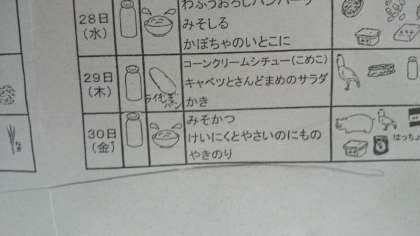 28日
(水)
わふうおろしハンバーグ
みそしる
かぼちゃのいとこに
29日
(木)
ライむぎパン
コーンクリームシチュー(こめこ)
キャベツとさんどまめのサラダ
かき
30日
(金)
みそかつ
けいにくとやさいのにもの
やきのり
はっちょ